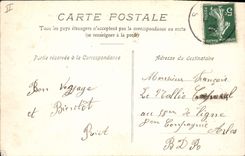 II
CARTE POSTALE
Tous les pays étrangers n'acceptent pas la correspondance au recto
(se renseigner à la poste)
Partie réservée à la Correspondance
Adresse du destinataire
5
Bon Voyage
et Bientôt
Monsieur François
Le
au 15 de Ligne
Compagnie
Arles
B D R